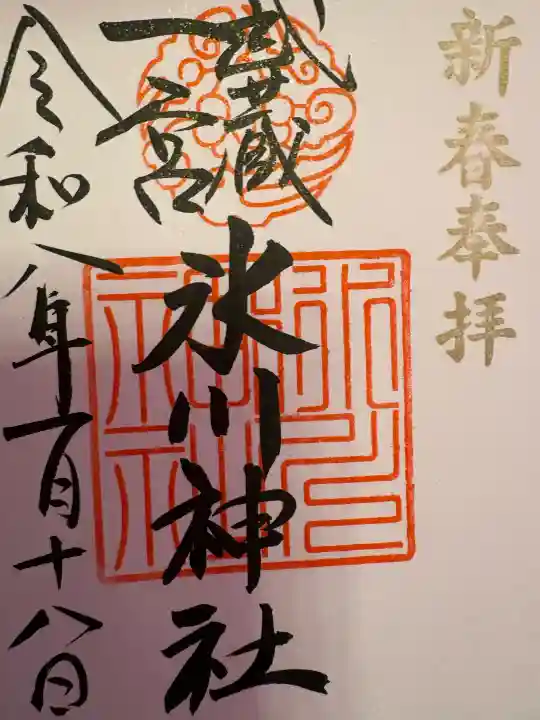 新春奉拝
武蔵
一宮
氷川神社
令和八年一月十八日